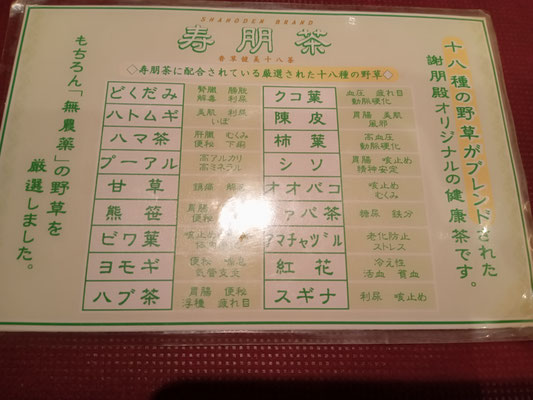 SHAHODEN BRAND
寿朋茶
香草健美十八茶
◇寿朋茶に配合されている厳選された十八種の野草◇
十八種の野草がブレンドされた
謝朋殿オリジナルの健康茶です。
どくだみ 腎臓 腸脱 解毒 利尿
ハトムギ 美肌 利尿 いぼ
ハマ茶 肝臓 むくみ 便秘 下痢
プーアル 高アルカリ 高ミネラル
甘草 鎮痛
熊笹 胃腸 便秘
ビワ葉 咳止め
ヨモギ 便秘 気管支炎
ハブ茶 胃腸 便秘 浮種 疲れ目
クコ葉 血圧 疲れ目 動脈硬化
陳皮 胃腸 美肌 風邪
柿葉 高血圧 動脈硬化
シソ 胃腸 咳止め 精神安定
オオバコ 咳止め むくみ
ァバ茶 糖尿 鉄分
アマチャヅル 老化防止 ストレス
紅花 冷え性 活血 貧血
スギナ 利尿 咳止め
もちろん「無農薬」の野草を
厳選しました。